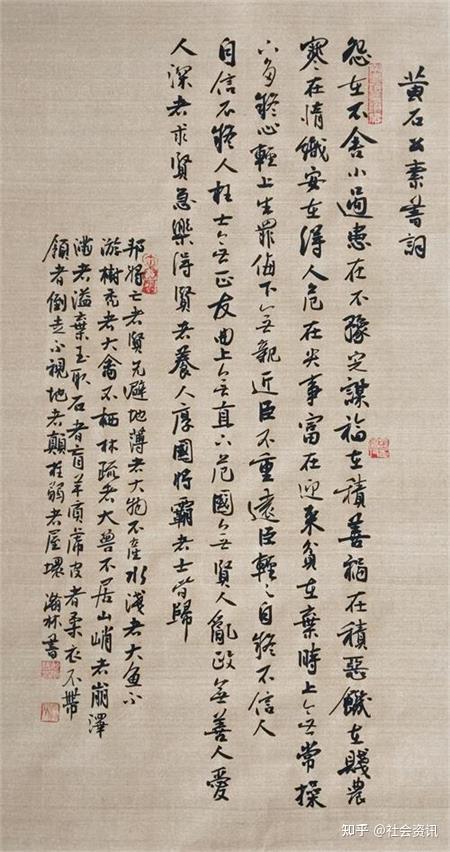 黄石公素書詞
怨在不舍小過患在不豫定謀福在積善禍在積惡饑在賤農
寒在惰織安在得人危在失事富在迎来貧在棄時上無常操
下多疑心輕上生罪侮下無親近臣不重遠臣輕之自疑不信人
自信不疑人枉士無正友曲上無直下危國無賢人亂政無善人愛
人深者求賢急樂得賢者養人厚國將霸者士皆歸
邦將亡者賢先避地薄者大物不産水淺者大魚不
游樹禿者大禽不栖林疏者大兽不居山峭者崩澤
滿者溢棄玉取石者盲羊質虎皮者柔衣不帶
領者倒走不視地者顛柱弱者屋壞 瀚林書
知乎 @社会资讯